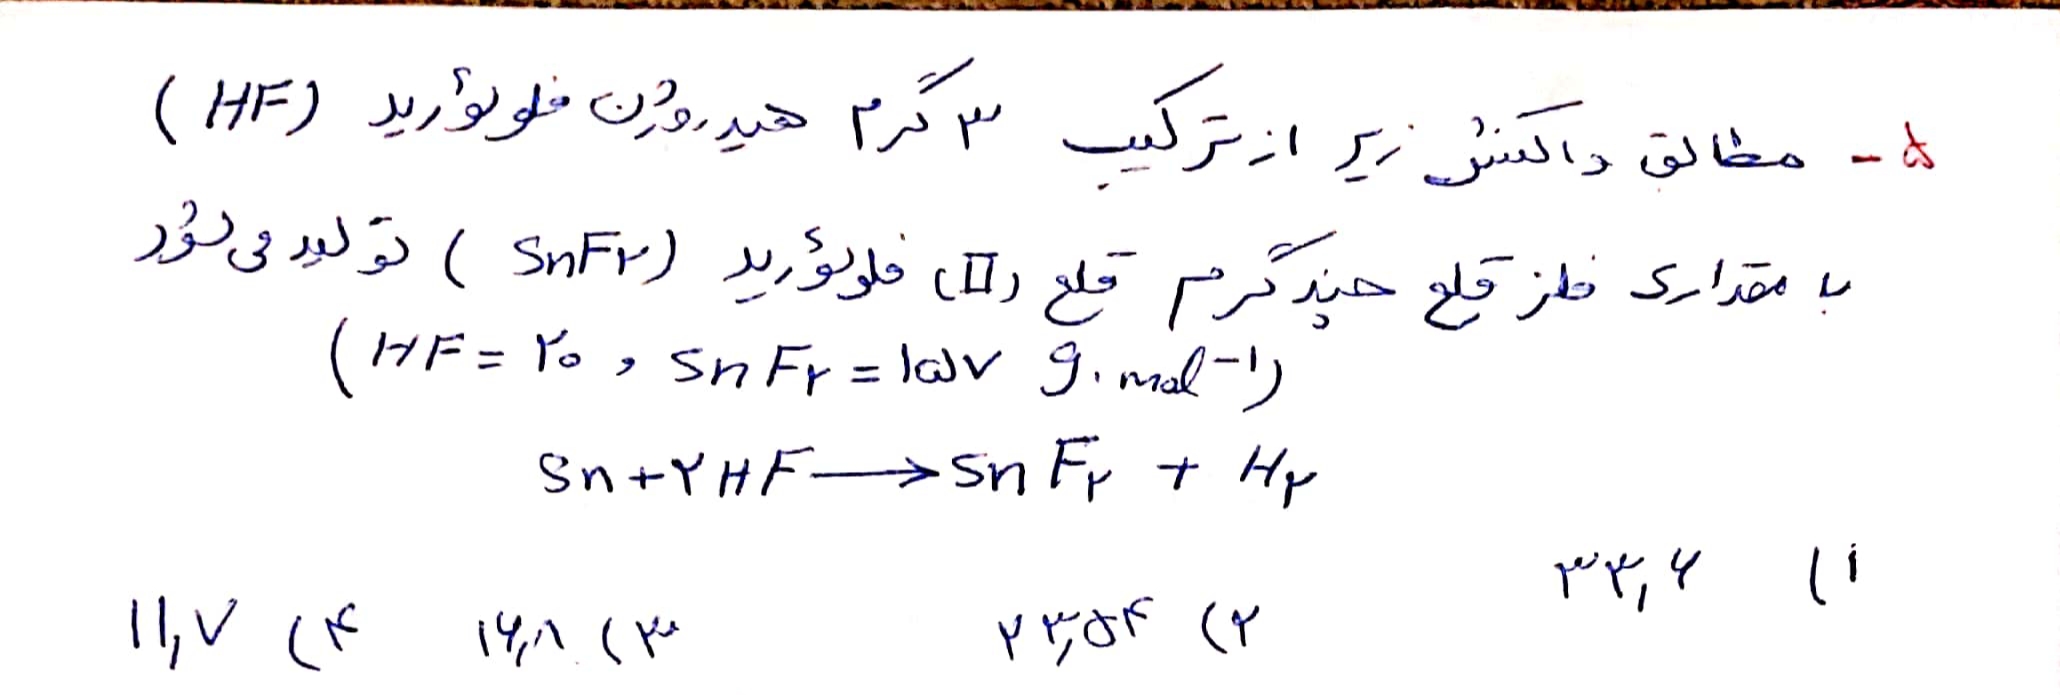 ۵- مطابق واکنش زیر از ترکیب ۳ گرم هیدروژن فلوئورید (HF)
با مقداری فلز قلع چند گرم قلع (II) فلوئورید (SnF۲) تولید می شود
(HF = ۲۰ , SnF۲ = ۱۵۷ g.mol-۱)
Sn + ۲HF → SnF۲ + H۲
۱) ۳۳,۶
۲) ۲۳,۵۴ ۳) ۱۶,۸ ۴) ۱۱,۷